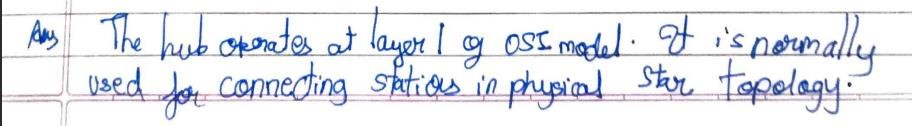 Ans The hub operates at layer 1 of OSI model. It is normally
used for connecting stations in physical star topology.